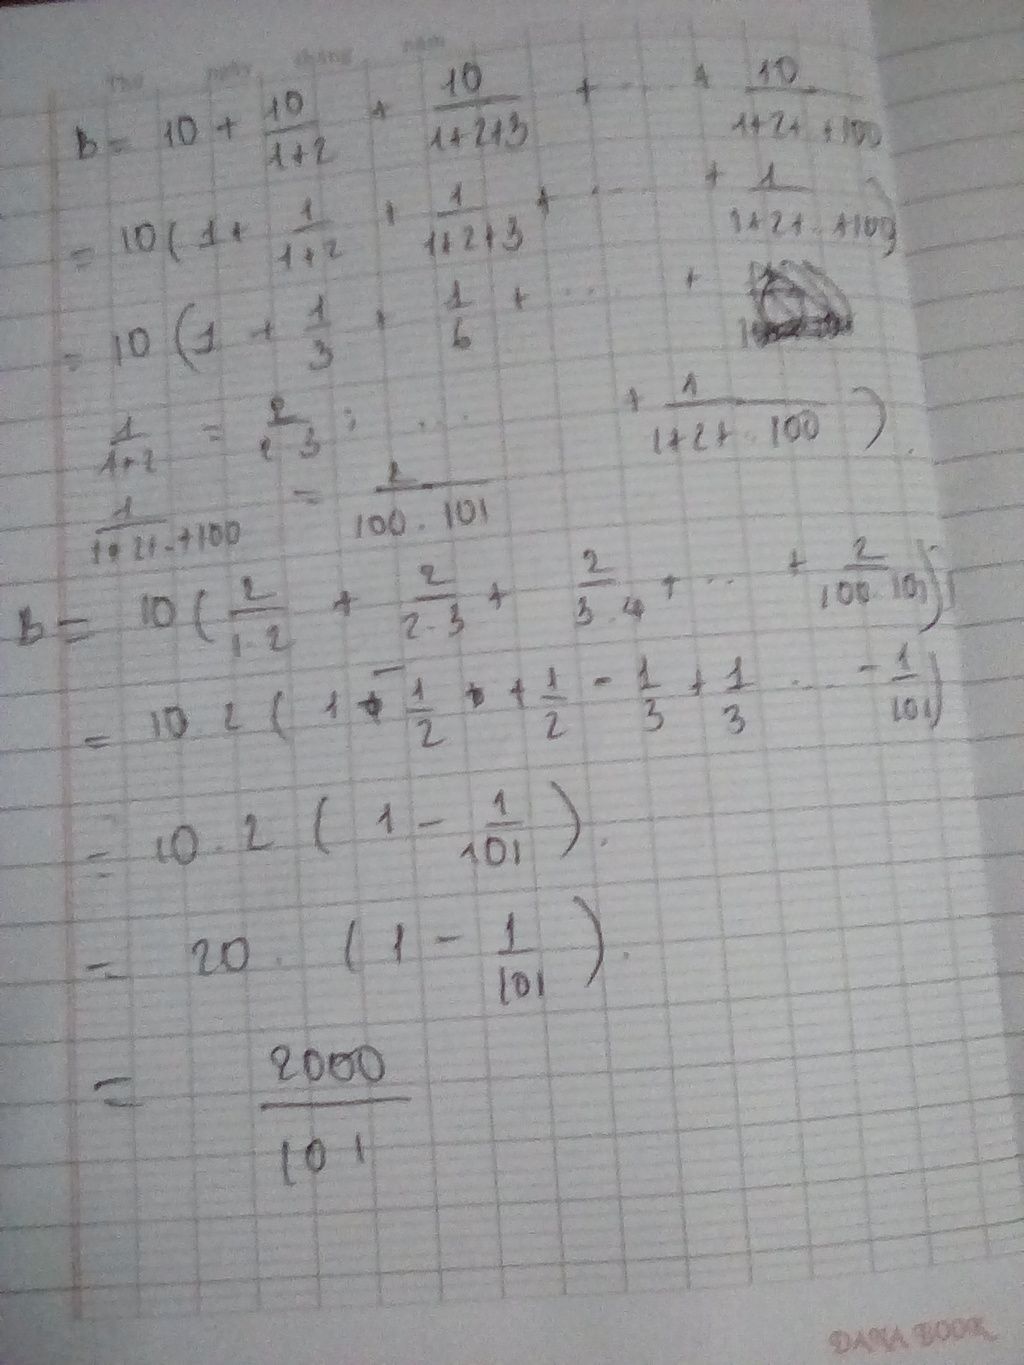 Thứ ngày tháng năm
B = 10 + 10/(1+2) + 10/(1+2+3) + ... + 10/(1+2+..+100)
= 10 ( 1 + 1/(1+2) + 1/(1+2+3) + ... + 1/(1+2+..+100) )
= 10 ( 1 + 1/3 + 1/6 + ... +
+ 1/(1+2+..100) ) .
1/(1+2) = 2/(2.3) ; ...
1/(1+2+..+100) = 2/(100.101)
B = 10 ( 2/(1.2) + 2/(2.3) + 2/(3.4) + ... + 2/(100.101) )
= 10 . 2 ( 1 - 1/2 + 1/2 - 1/3 + 1/3 ... - 1/101 )
= 10 . 2 ( 1 - 1/101 ) .
= 20 . ( 1 - 1/101 ) .
= 2000/101
DANA BOOK